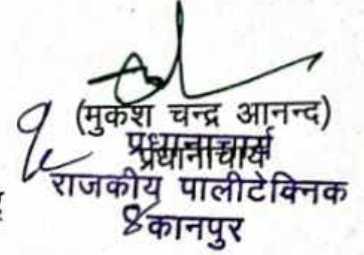 (मुकेश चन्द्र आनन्द)
प्रधानाचार्य
राजकीय पालीटेक्निक
कानपुर